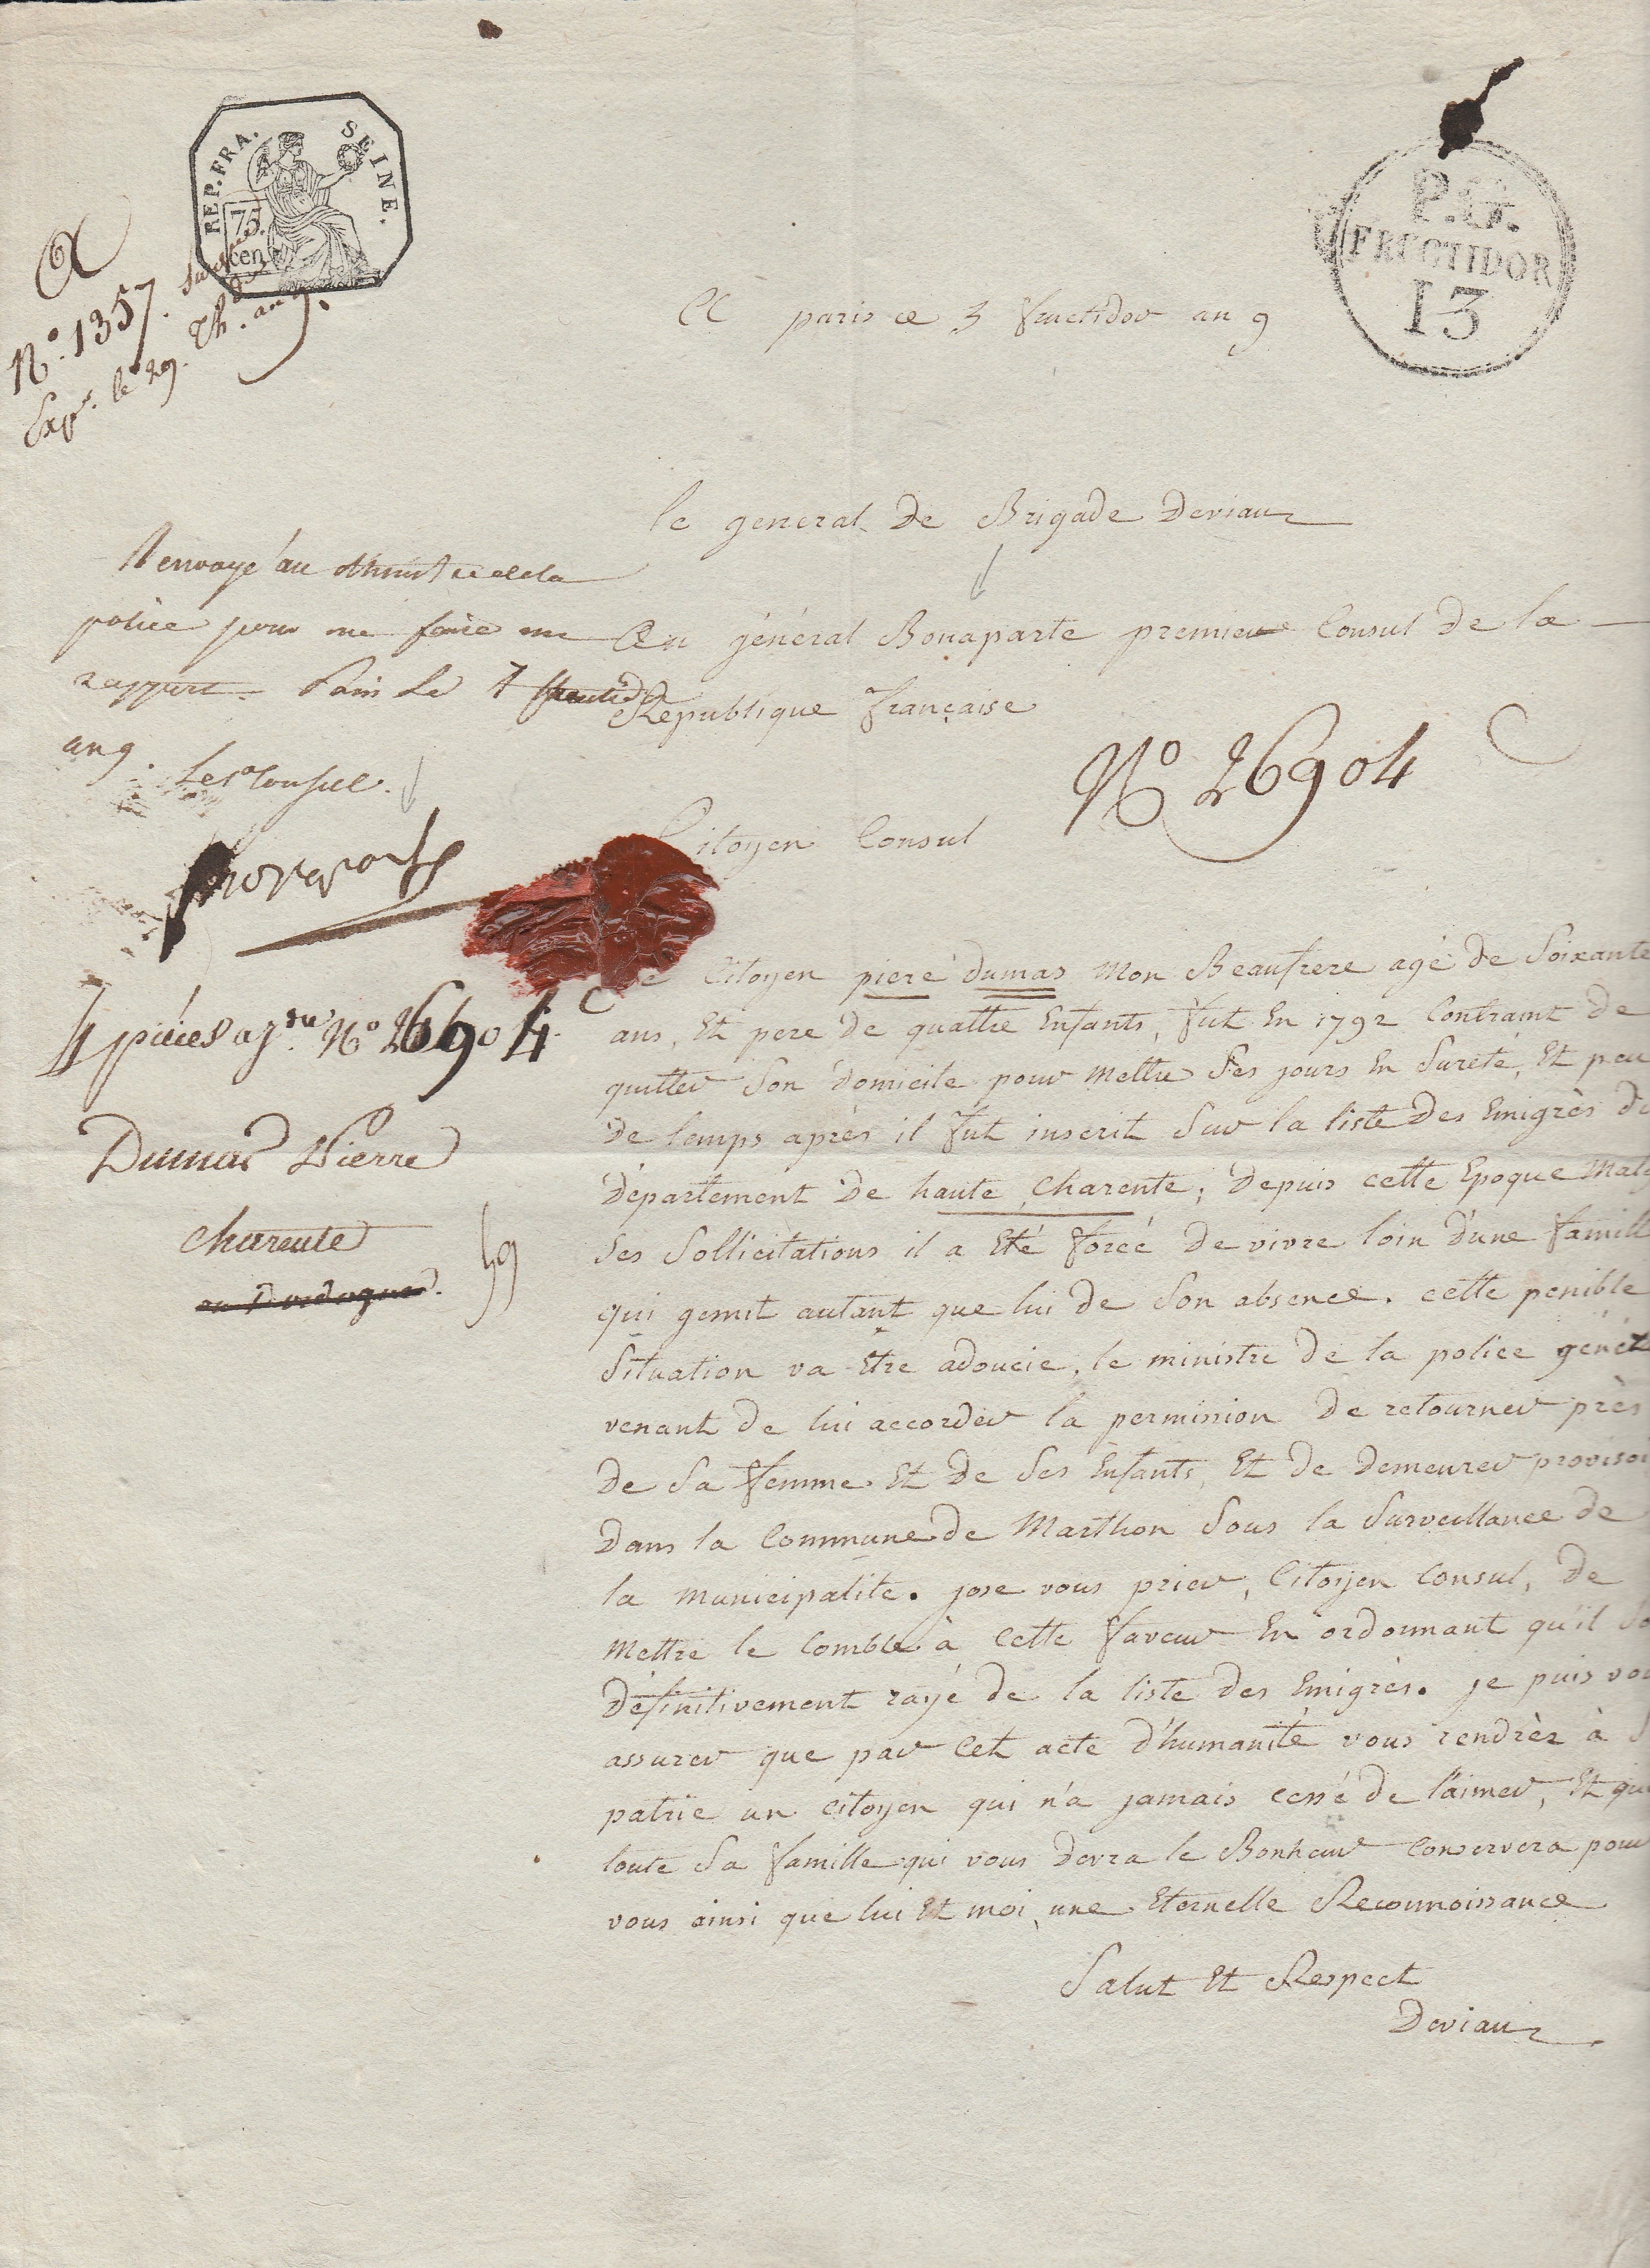 REP. FRA. SEINE.
75.
cen
P.G.
FRUCTIDOR
13
N.o 1357.
Exp. le 29. Th. an 9.
A paris ce 3 fructidor an 9
le general de Brigade Deviau
Renvoyé au Ministre de la
police pour me faire un
rapport. Paris le 7 fructidor
an 9.
Le 1er Consul.
Bonaparte
Au général Bonaparte premier Consul de la
Republique française
No 26904
Citoyen Consul
4 pièces No 26904
Dumas Pierre
Charente
ou Dordogne.
59
le Citoyen pieré dumas mon Beaufrere agé de Soixante
ans, Et pere de quattre Enfants, fut En 1792 Contraint de
quitter Son domicile pour mettre Ses jours En Sureté, Et peu
de temps après il fut inscrit Sur la liste des Emigrès du
département de haute Charente; depuis cette Epoque Malg
Ses Sollicitations il a Eté forcé de vivre loin d'une famill
qui gemit autant que lui de Son absence. cette penible
Situation va Etre adoucie, le ministre de la police génér
venant de lui accorder la permission de retourner près
de Sa femme Et de Ses Enfants, Et de demeurer provisoi
dans la Commune de Marthon Sous la Surveillance de
la municipalite. jose vous prier, Citoyen Consul, de
Mettre le Comble à Cette faveur En ordonnant qu'il So
définitivement rayé de la liste des Emigrès. je puis vou
assurer que par Cet acte d'humanité vous rendrèz à S
patrie un citoyen qui n'a jamais cessé de l'aimer, Et que
toute Sa famille qui vous devra le Bonheur Conservera pour
vous ainsi que lui Et moi, une Eternelle Reconnoissance
Salut Et Respect
Deviau